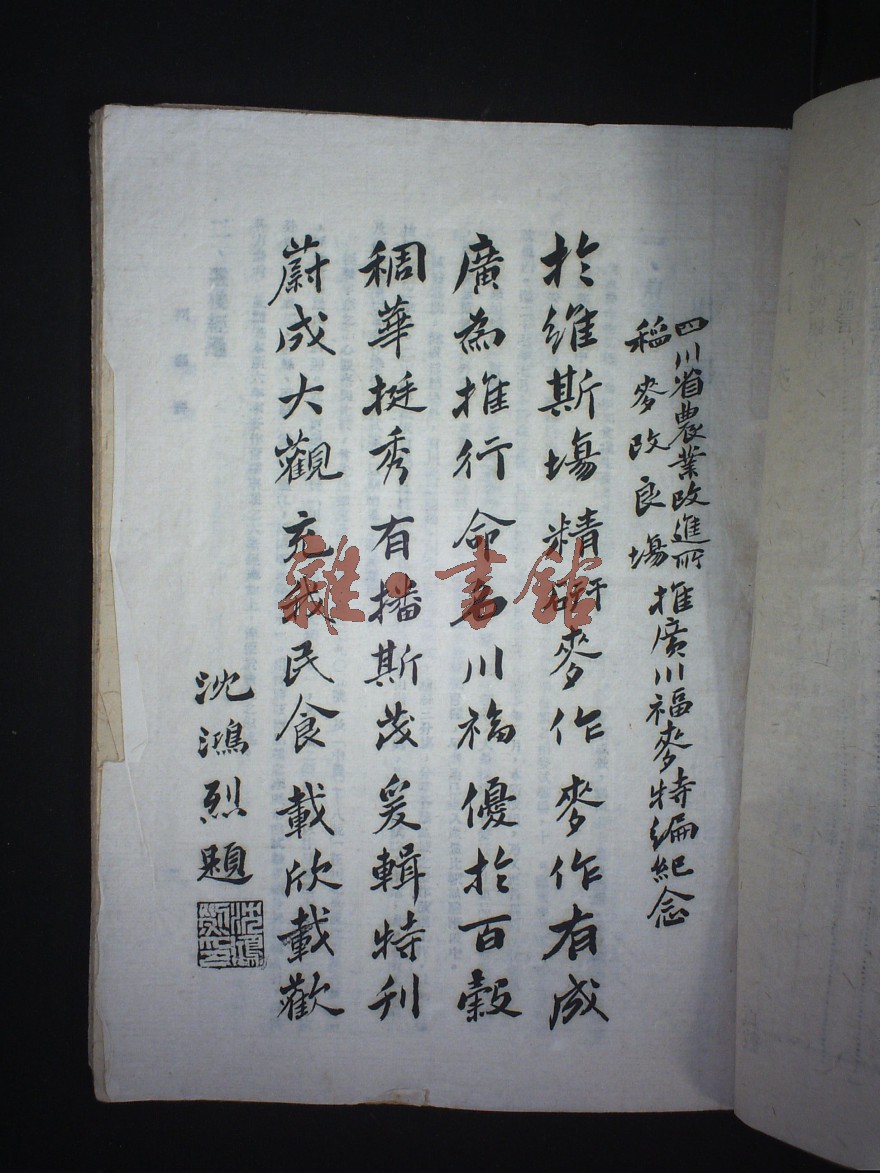 四川省農業改進所
稻麥改良場
推廣川福麥特編紀念
於維斯場精研麥作麥作有成
廣為推行命名川福優於百穀
稠華挺秀有播斯茂爰輯特刊
蔚成大觀充我民食載欣載歡
沈鴻烈題
沈鴻烈印
雜·書館